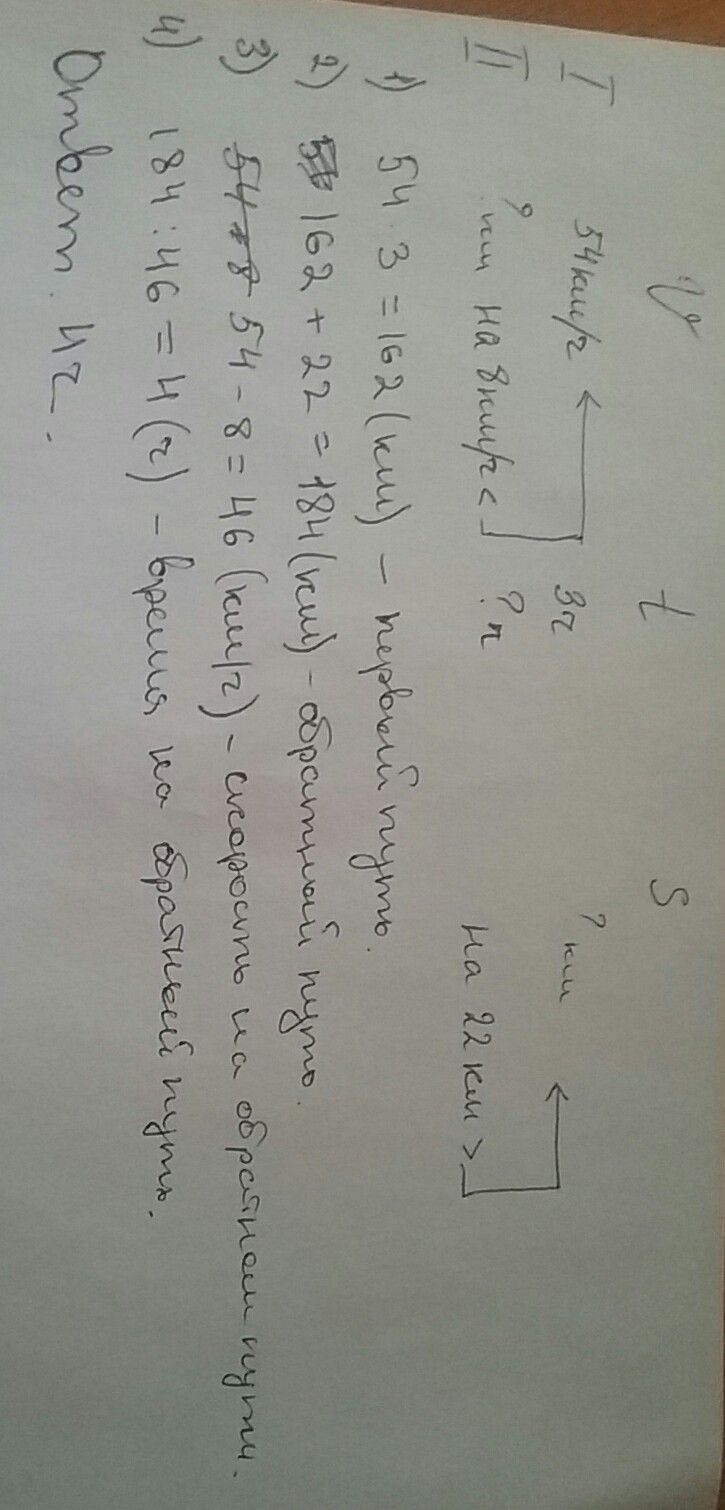 V t S
I 54км/ч 3ч ? км
II ? км на 8км/ч < ? ч на 22 км >
1) 54 · 3 = 162 (км) – первый путь.
2) 162 + 22 = 184 (км) – обратный путь.
3) 54 - 8 54 - 8 = 46 (км/ч) – скорость на обратном пути.
4) 184 : 46 = 4 (ч) – время на обратный путь.
Ответ. 4ч.